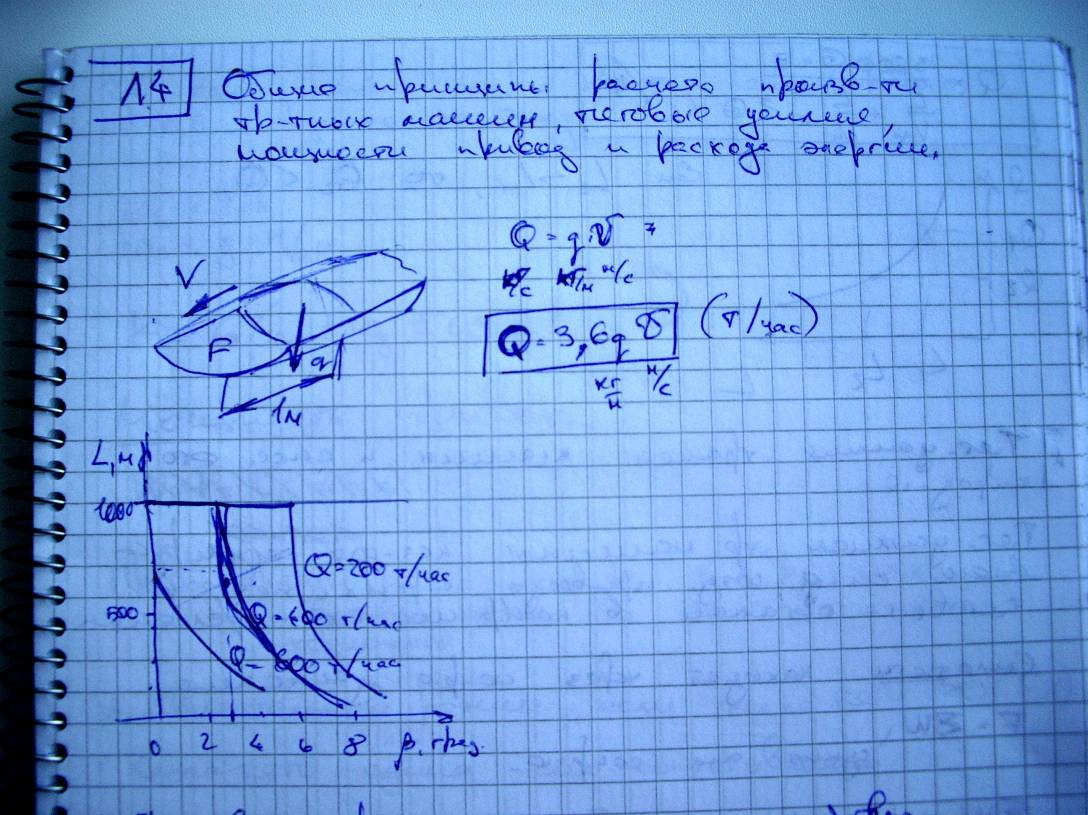 14
Общие принципы расчета произв-ти
тр-тных машин, тяговые усилия,
мощности привод и расхода энергии.
Q = q·V
кг/с кг/м м/с
V
Q = 3,6 q V (т/час)
F
q
кг/м м/с
1м
L, м
1000
Q=200 т/час
500
Q=400 т/час
Q=600 т/час
0 2 4 6 8 β, град.